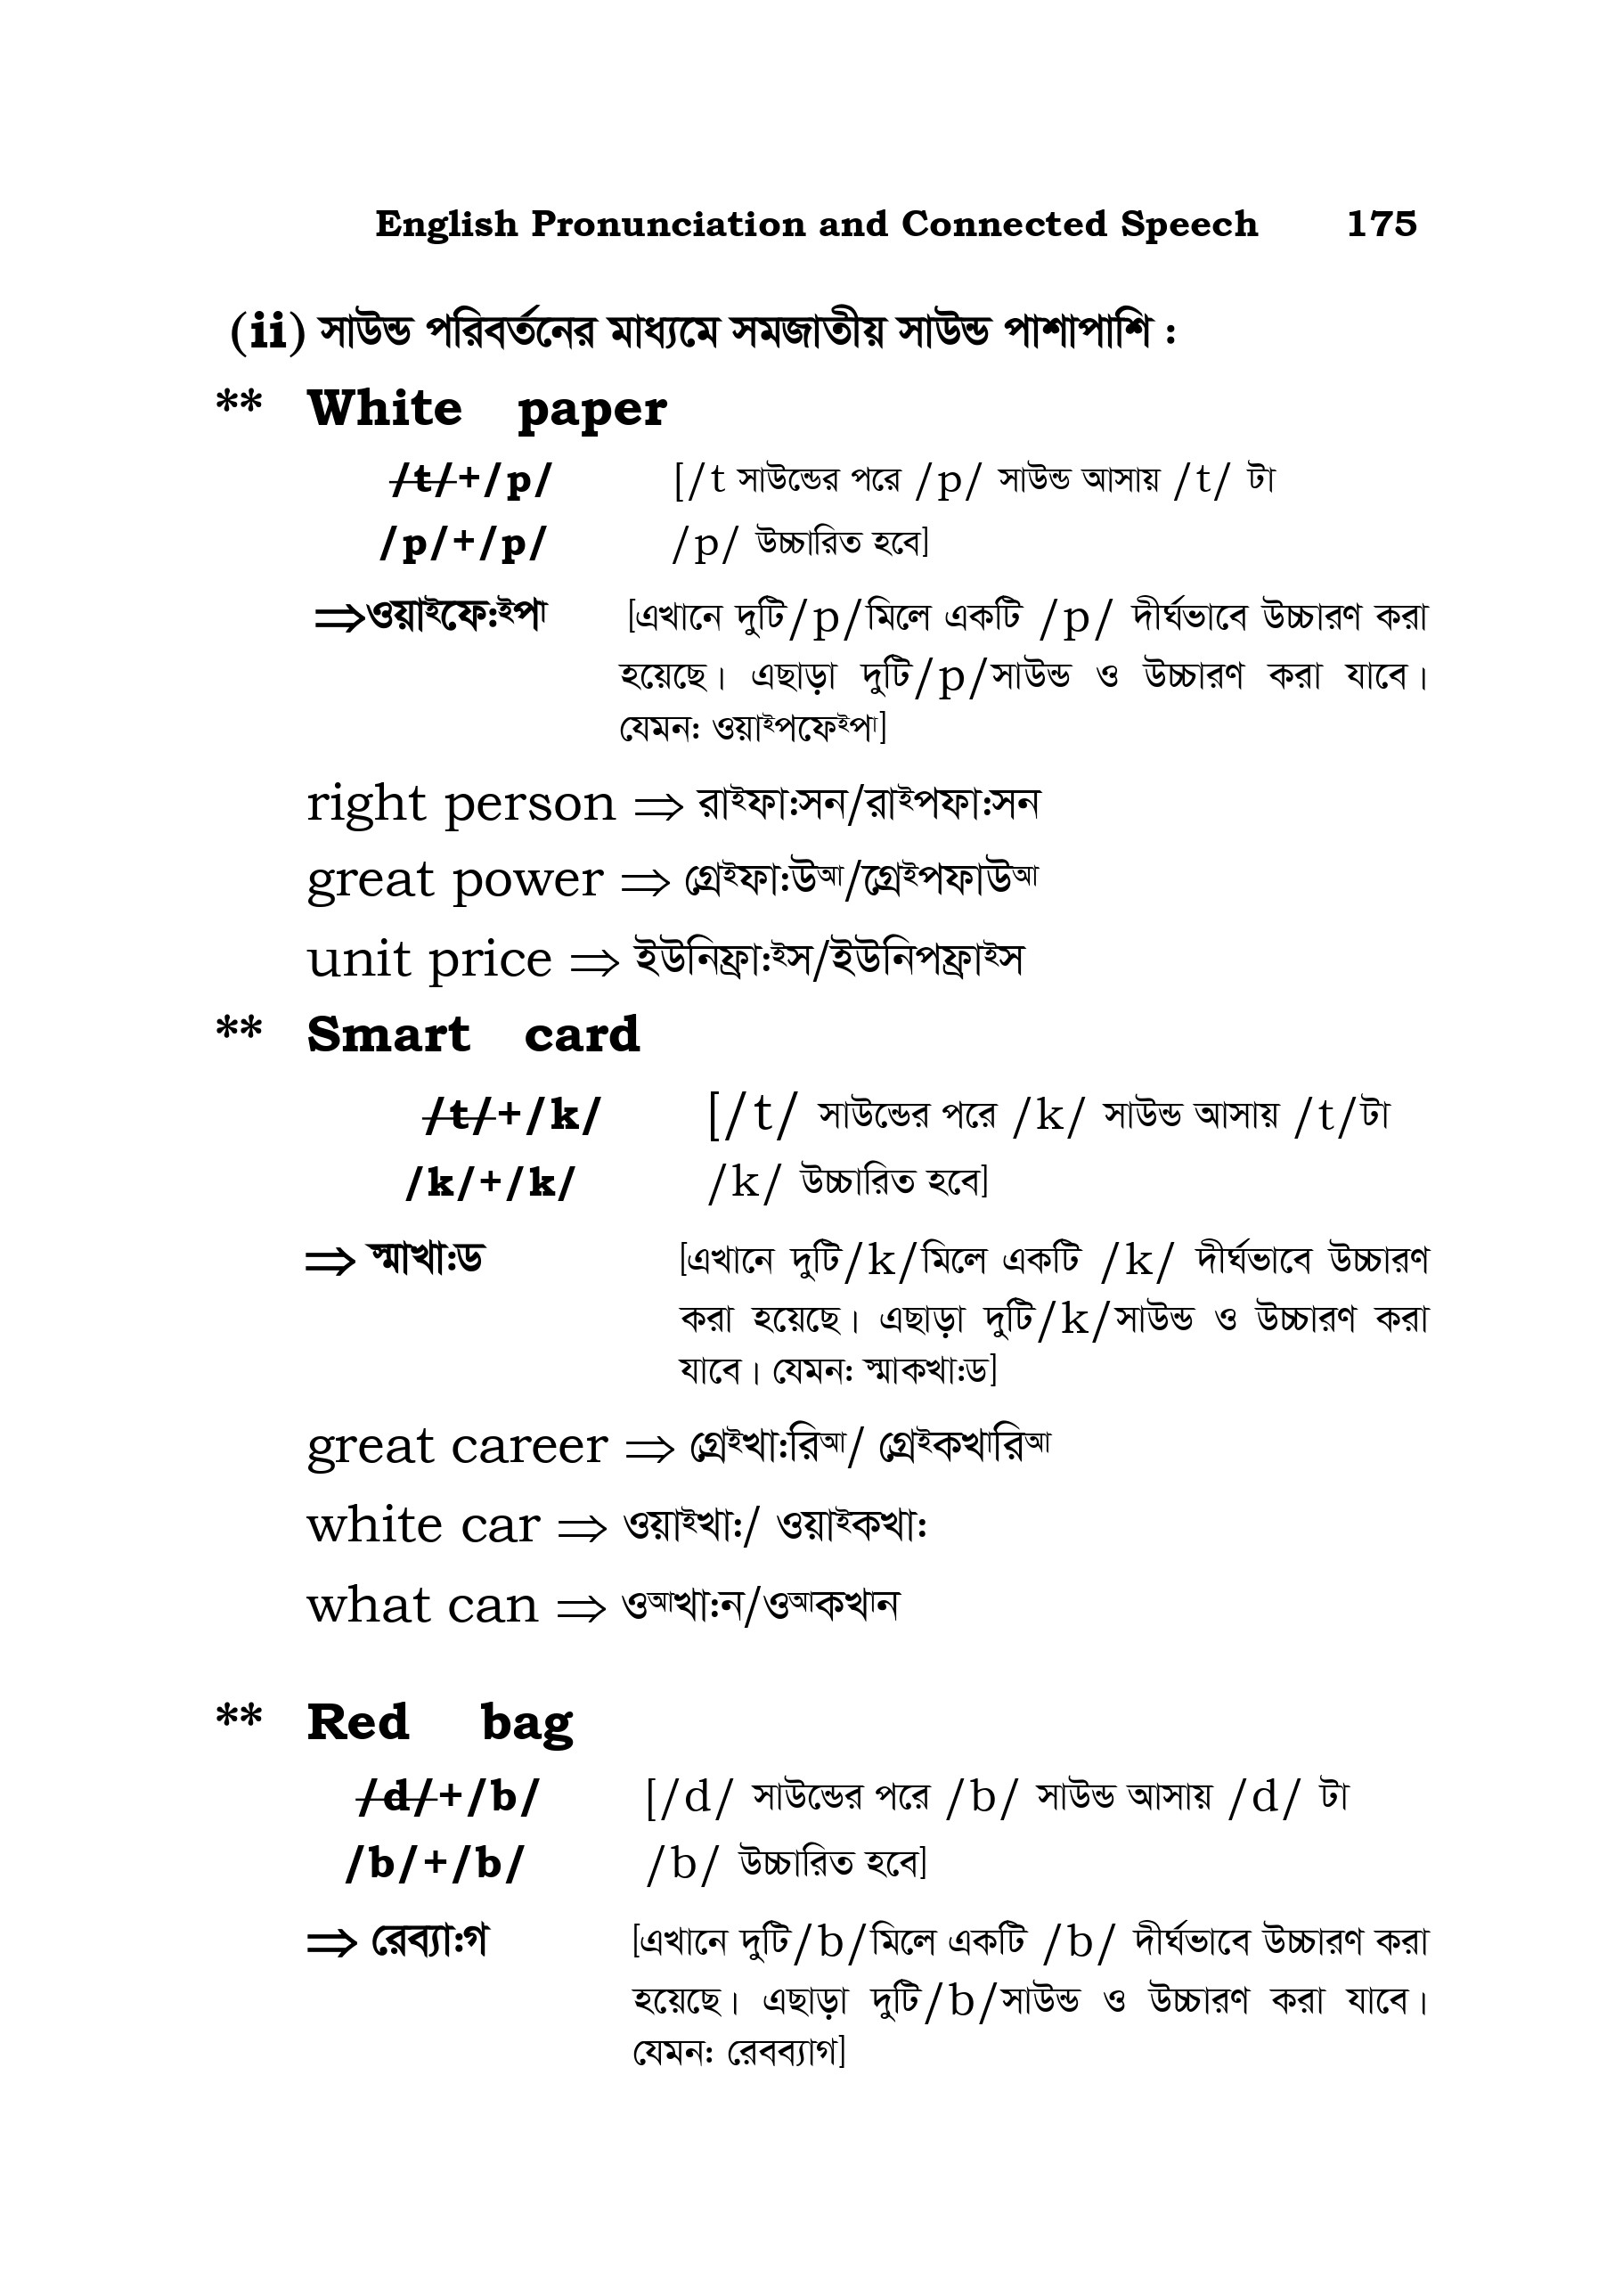 English Pronunciation and Connected Speech 175
(ii) সাউন্ড পরিবর্তনের মাধ্যমে সমজাতীয় সাউন্ড পাশাপাশি :
** White paper
/t/+/p/ [/t সাউন্ডের পরে /p/ সাউন্ড আসায় /t/ টা
/p/+/p/ /p/ উচ্চারিত হবে]
⇒ওয়াইফে:ইপা [এখানে দুটি/p/মিলে একটি /p/ দীর্ঘভাবে উচ্চারণ করা
হয়েছে। এছাড়া দুটি/p/সাউন্ড ও উচ্চারণ করা যাবে।
যেমন: ওয়াইপফেইপা]
right person ⇒ রাইফা:সন/রাইপফা:সন
great power ⇒ গ্রেইফা:উআ/গ্রেইপফাউআ
unit price ⇒ ইউনিফ্রা:ইস/ইউনিপফ্রাইস
** Smart card
/t/+/k/ [/t/ সাউন্ডের পরে /k/ সাউন্ড আসায় /t/টা
/k/+/k/ /k/ উচ্চারিত হবে]
⇒ স্মাখা:ড [এখানে দুটি/k/মিলে একটি /k/ দীর্ঘভাবে উচ্চারণ
করা হয়েছে। এছাড়া দুটি/k/সাউন্ড ও উচ্চারণ করা
যাবে। যেমন: স্মাকখা:ড]
great career ⇒ গ্রেইখা:রিআ/ গ্রেইকখারিআ
white car ⇒ ওয়াইখা:/ ওয়াইকখা:
what can ⇒ ওআখা:ন/ওআকখান
** Red bag
/d/+/b/ [/d/ সাউন্ডের পরে /b/ সাউন্ড আসায় /d/ টা
/b/+/b/ /b/ উচ্চারিত হবে]
⇒ রেব্যা:গ [এখানে দুটি/b/মিলে একটি /b/ দীর্ঘভাবে উচ্চারণ করা
হয়েছে। এছাড়া দুটি/b/সাউন্ড ও উচ্চারণ করা যাবে।
যেমন: রেবব্যাগ]